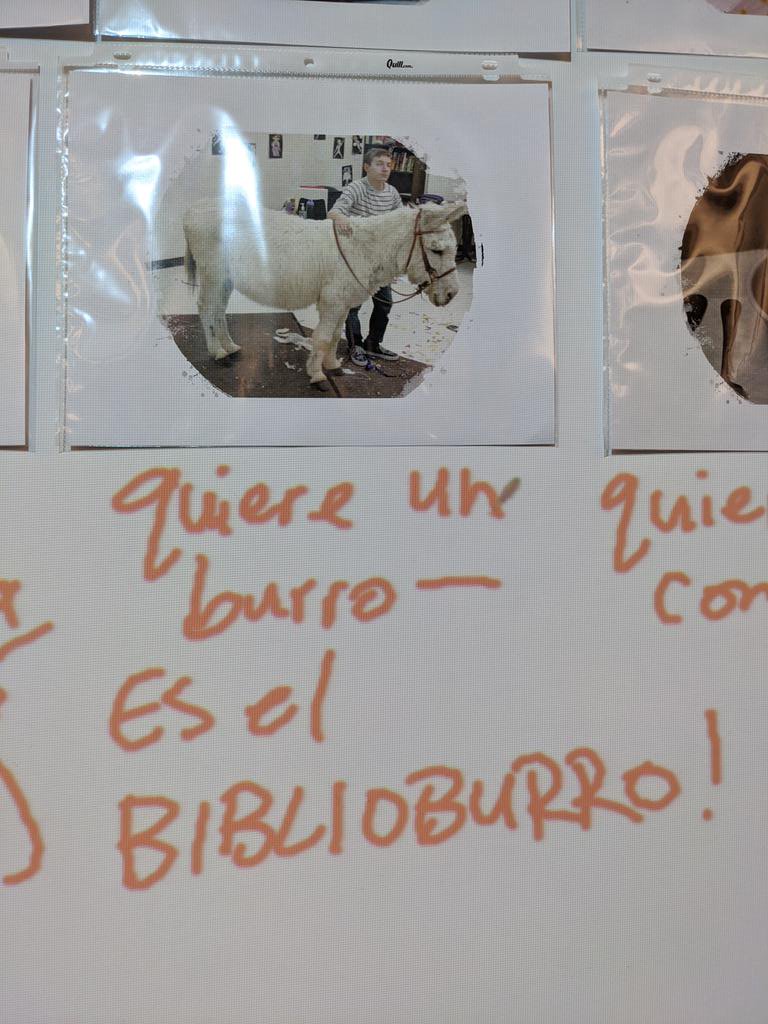 Quill.com
quiere un
burro —
Es el
BIBLIOBURRO!
quie
con